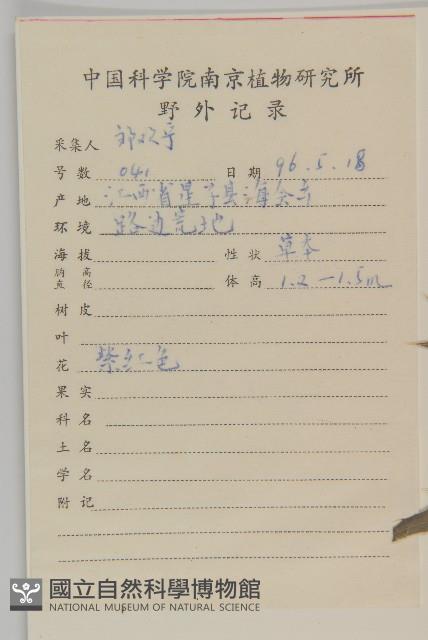 中国科学院南京植物研究所
野外记录
采集人
号数 041 日期 96.5.18
产地 江西省星子县海会
环境 路边荒地
海拔 性状 草本
胸高直径 体高 1.2—1.5m
树皮
叶
花 紫红色
果实
科名
土名
学名
附记
國立自然科學博物館
NATIONAL MUSEUM OF NATURAL SCIENCE